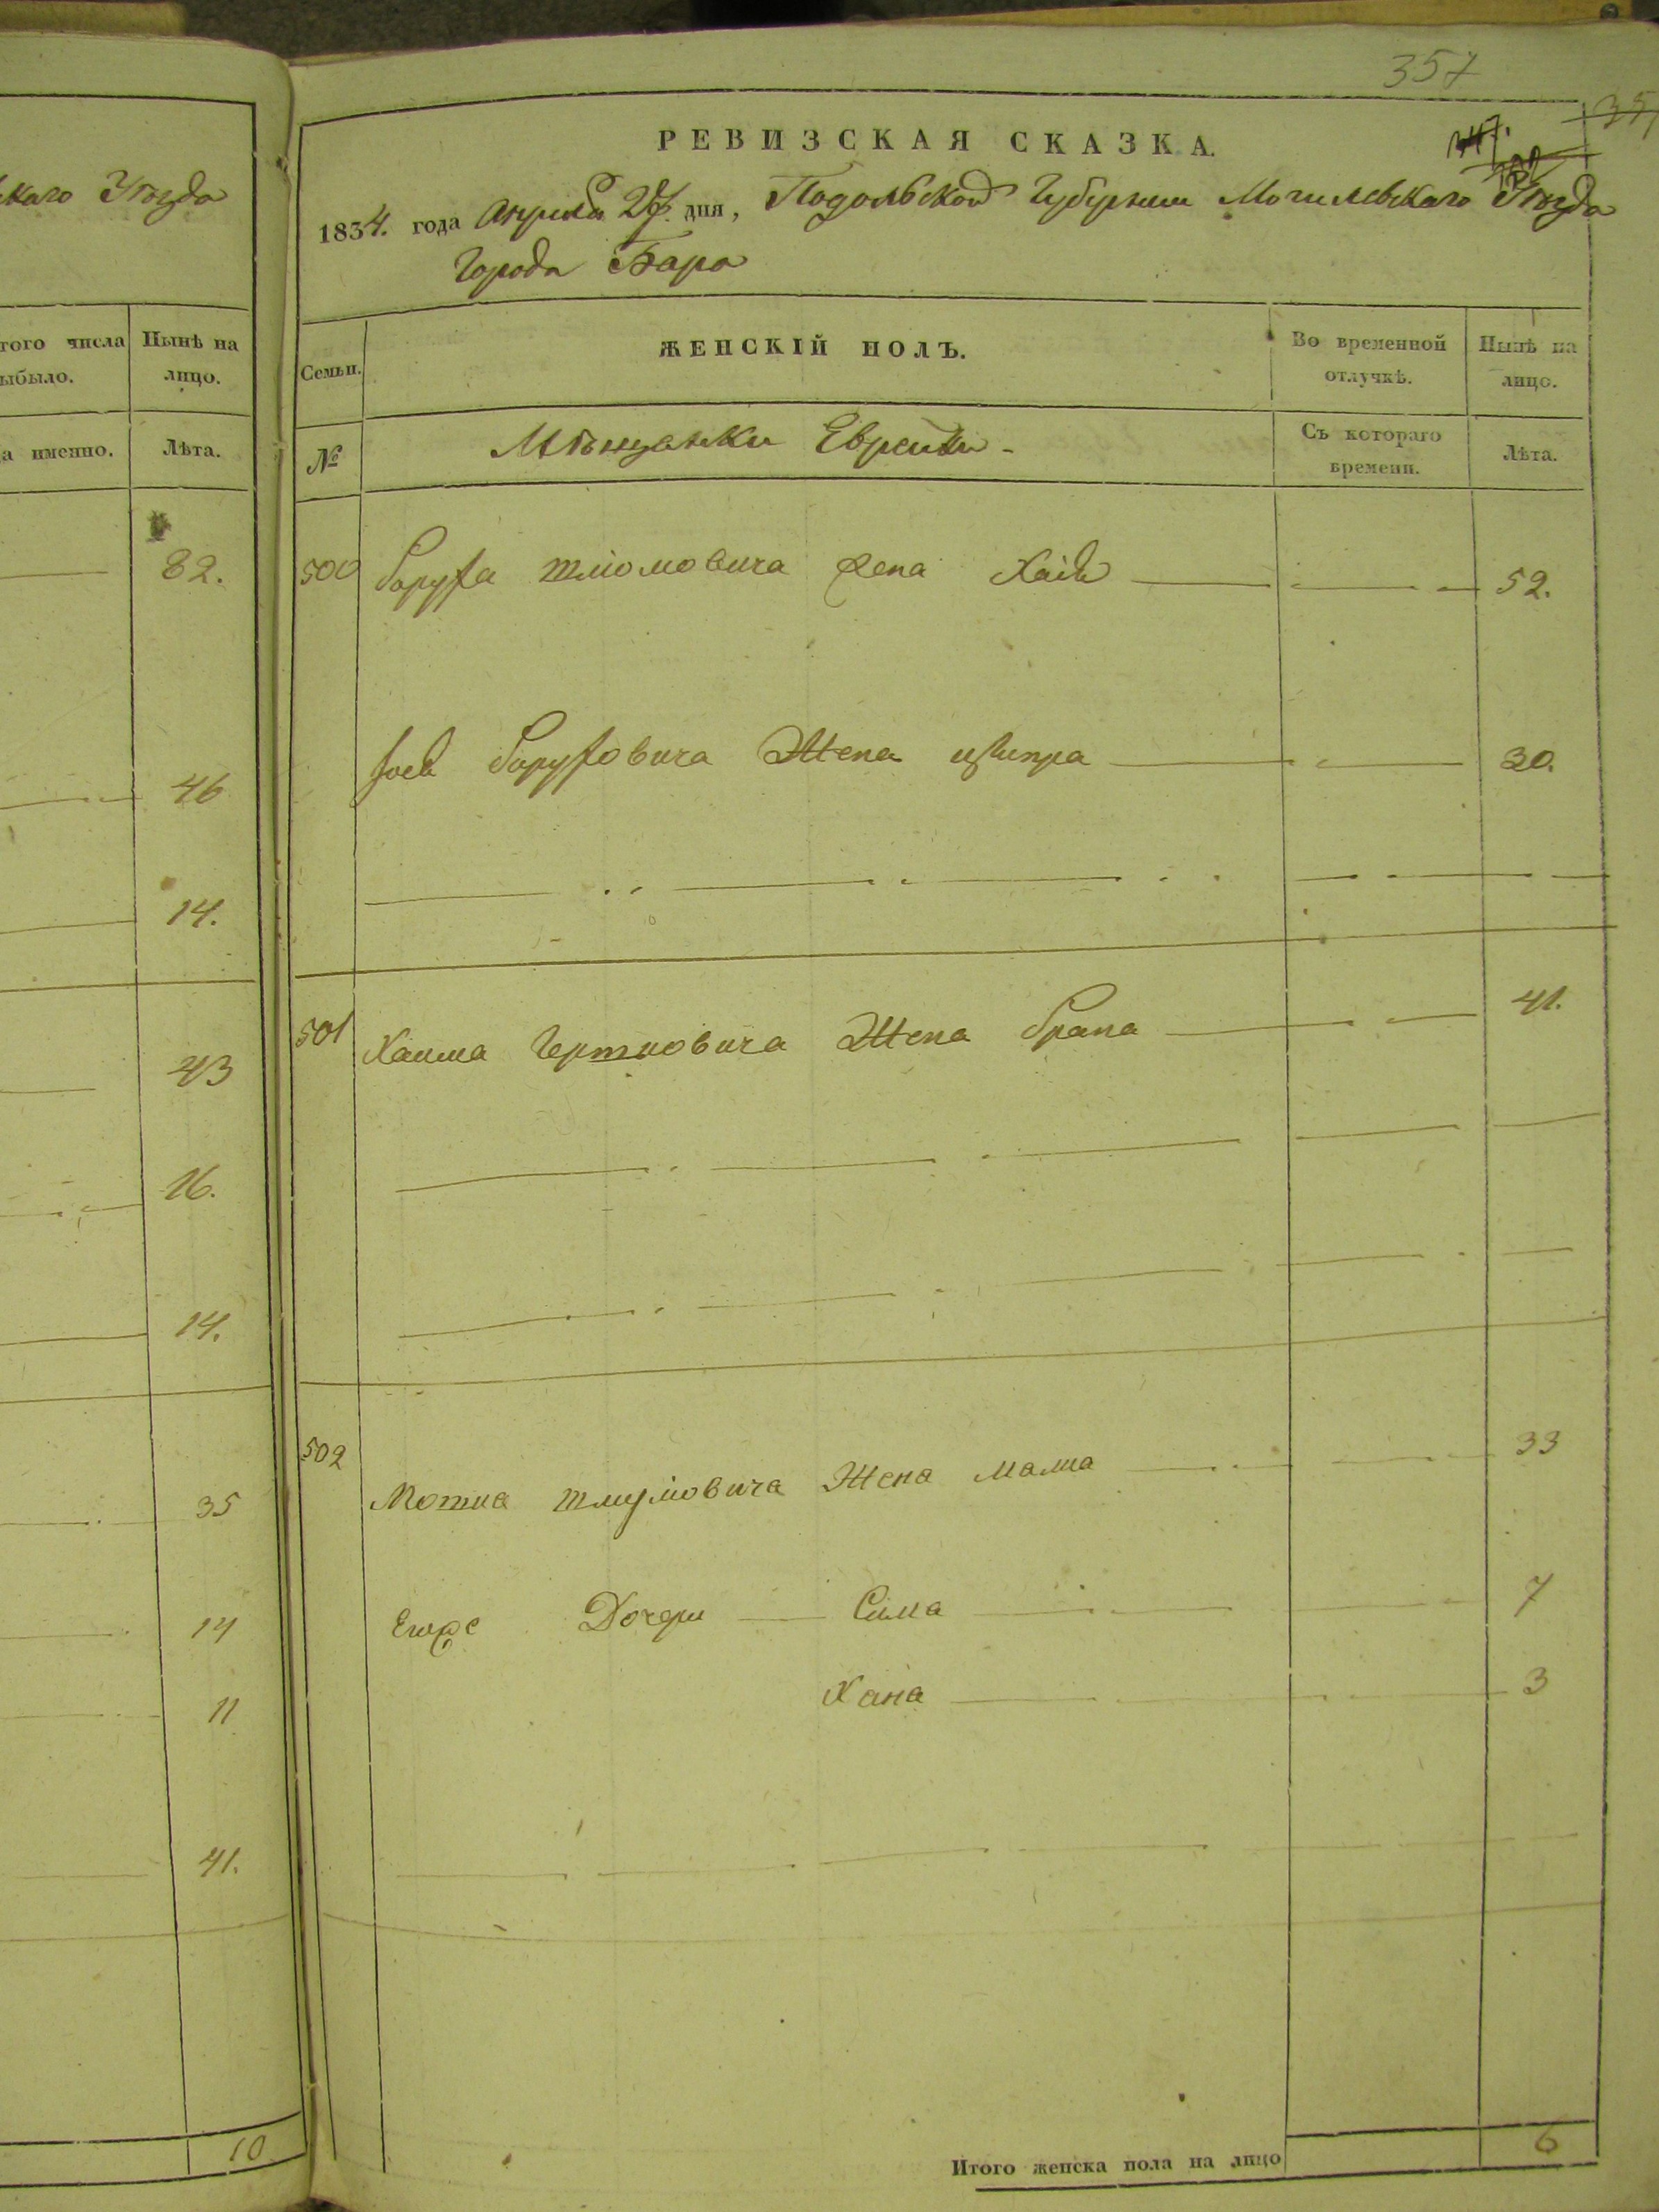 каго Уѣзда
того числа
выбыло.
Нынѣ на
лицо.
да именно.
Лѣта.
82.
46
14.
43
16.
14.
35
14
11
41.
10
357
РЕВИЗСКАЯ СКАЗКА.
347.
1834. года Апреля дня, Подольской Губернии Могилевскаго Уѣзда
Города Бара
Семьи.
ЖЕНСКІЙ ПОЛЪ.
Во временной
отлучкѣ.
Нынѣ на
лицо.
№
Мѣщанки Еврейки
Съ котораго
времени.
Лѣта.
500 Боруха Шліомовича Жена Хаія 52.
Іося Боруховича Жена Ципра 30.
501 Хаима Гершковича Жена Брана 41.
502 Мошка Шлиомовича Жена Малка 33
Егоже Дочери Сима 7
Хана 3
Итого женска пола на лицо 6